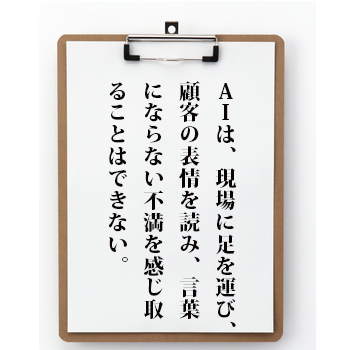 AIは、現場に足を運び、
顧客の表情を読み、言葉
にならない不満を感じ取
ることはできない。